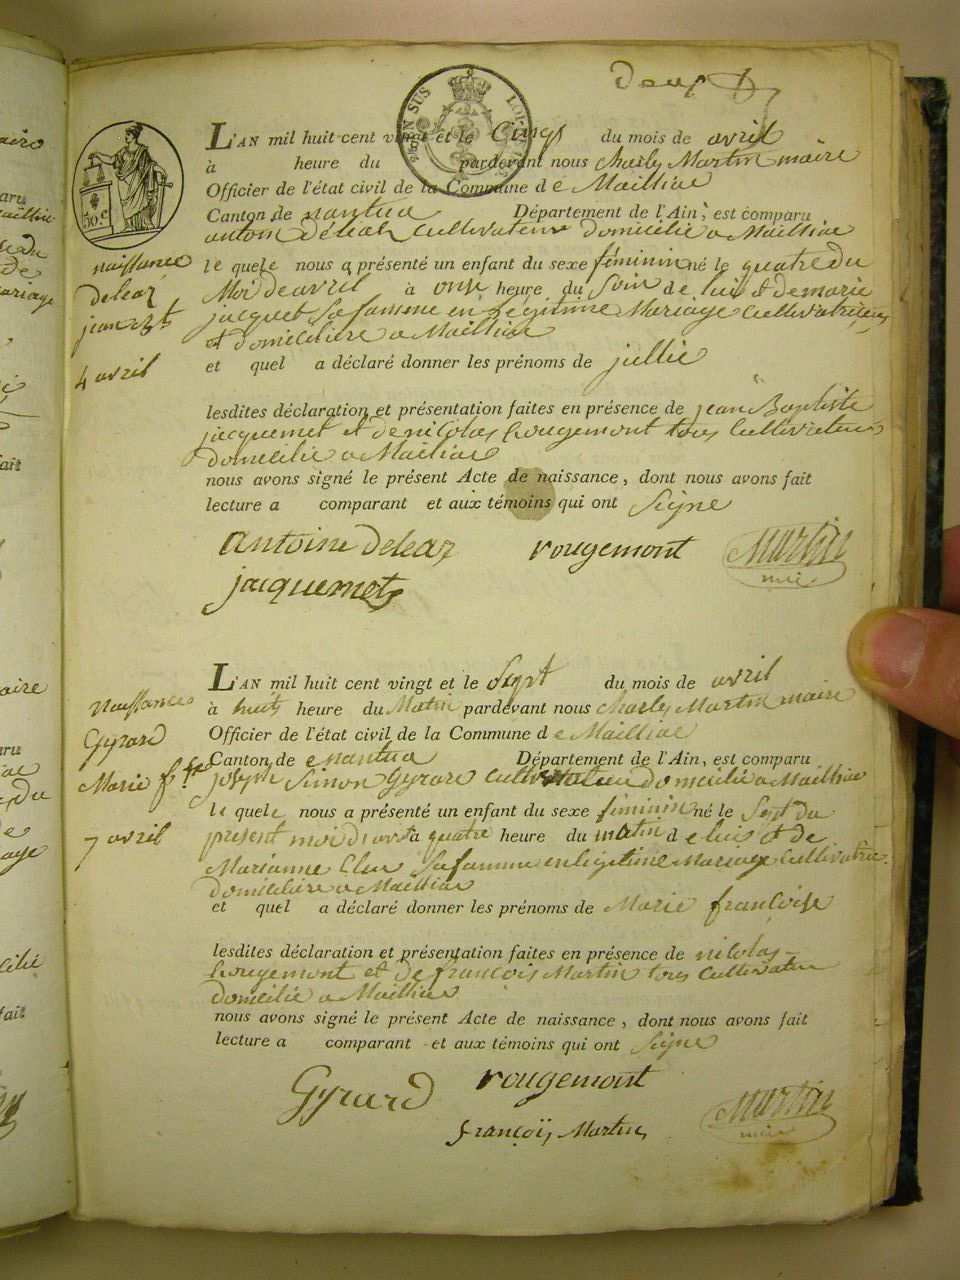 deux
L'AN mil huit cent vingt et le Cinq du mois de avril
à heure du pardevant nous Charly Martin maire
Officier de l'état civil de la Commune d e Mailliac
Canton de nantua Département de l'Ain, est comparu
antoin deleaz Cultivateur domicilié a Mailliac
le quel e nous a présenté un enfant du sexe féminin né le quatre du
Moi de avril à onse heure du Soir de lui et de marie
jacquet Sa famme en légitime Mariage Cultivatrice
et domicilière a Mailliac
et quel a déclaré donner les prénoms de jullie
lesdites déclaration et présentation faites en présence de jean Baptiste
jacquemet et de nicolas Rougemont tous Cultivateur
domicilié a Mailiac
nous avons signé le présent Acte de naissance, dont nous avons fait
lecture a comparant et aux témoins qui ont Signe
antoine deleaz rougemont Martin
mire
jacquemet
naissance
deleaz
4 avril
50 c
L'AN mil huit cent vingt et le Sept du mois de avril
à huit heure du Matin pardevant nous Charly Martin maire
Officier de l'état civil de la Commune d e Mailliac
Canton de nantua Département de l'Ain, est comparu
joseph Simon Gyrard Cultivateur domicilié a Mailliac
le quel e nous a présenté un enfant du sexe féminin né le Sept du
présent moi davril à quatre heure du matin d e lui et de
Marianne Sa famme en légitime Mariage Cultivatrice
domicilière a Mailliac
et quel a déclaré donner les prénoms de Marie françoise
lesdites déclaration et présentation faites en présence de nicolas
Rougemont et de françois Martin tous Cultivateur
domicilié a Mailliac
nous avons signé le présent Acte de naissance, dont nous avons fait
lecture a comparant et aux témoins qui ont Signe
Gyrard rougemont
françois Martin Martin
mire
naissance
Gyrard
Marie fse
7 avril